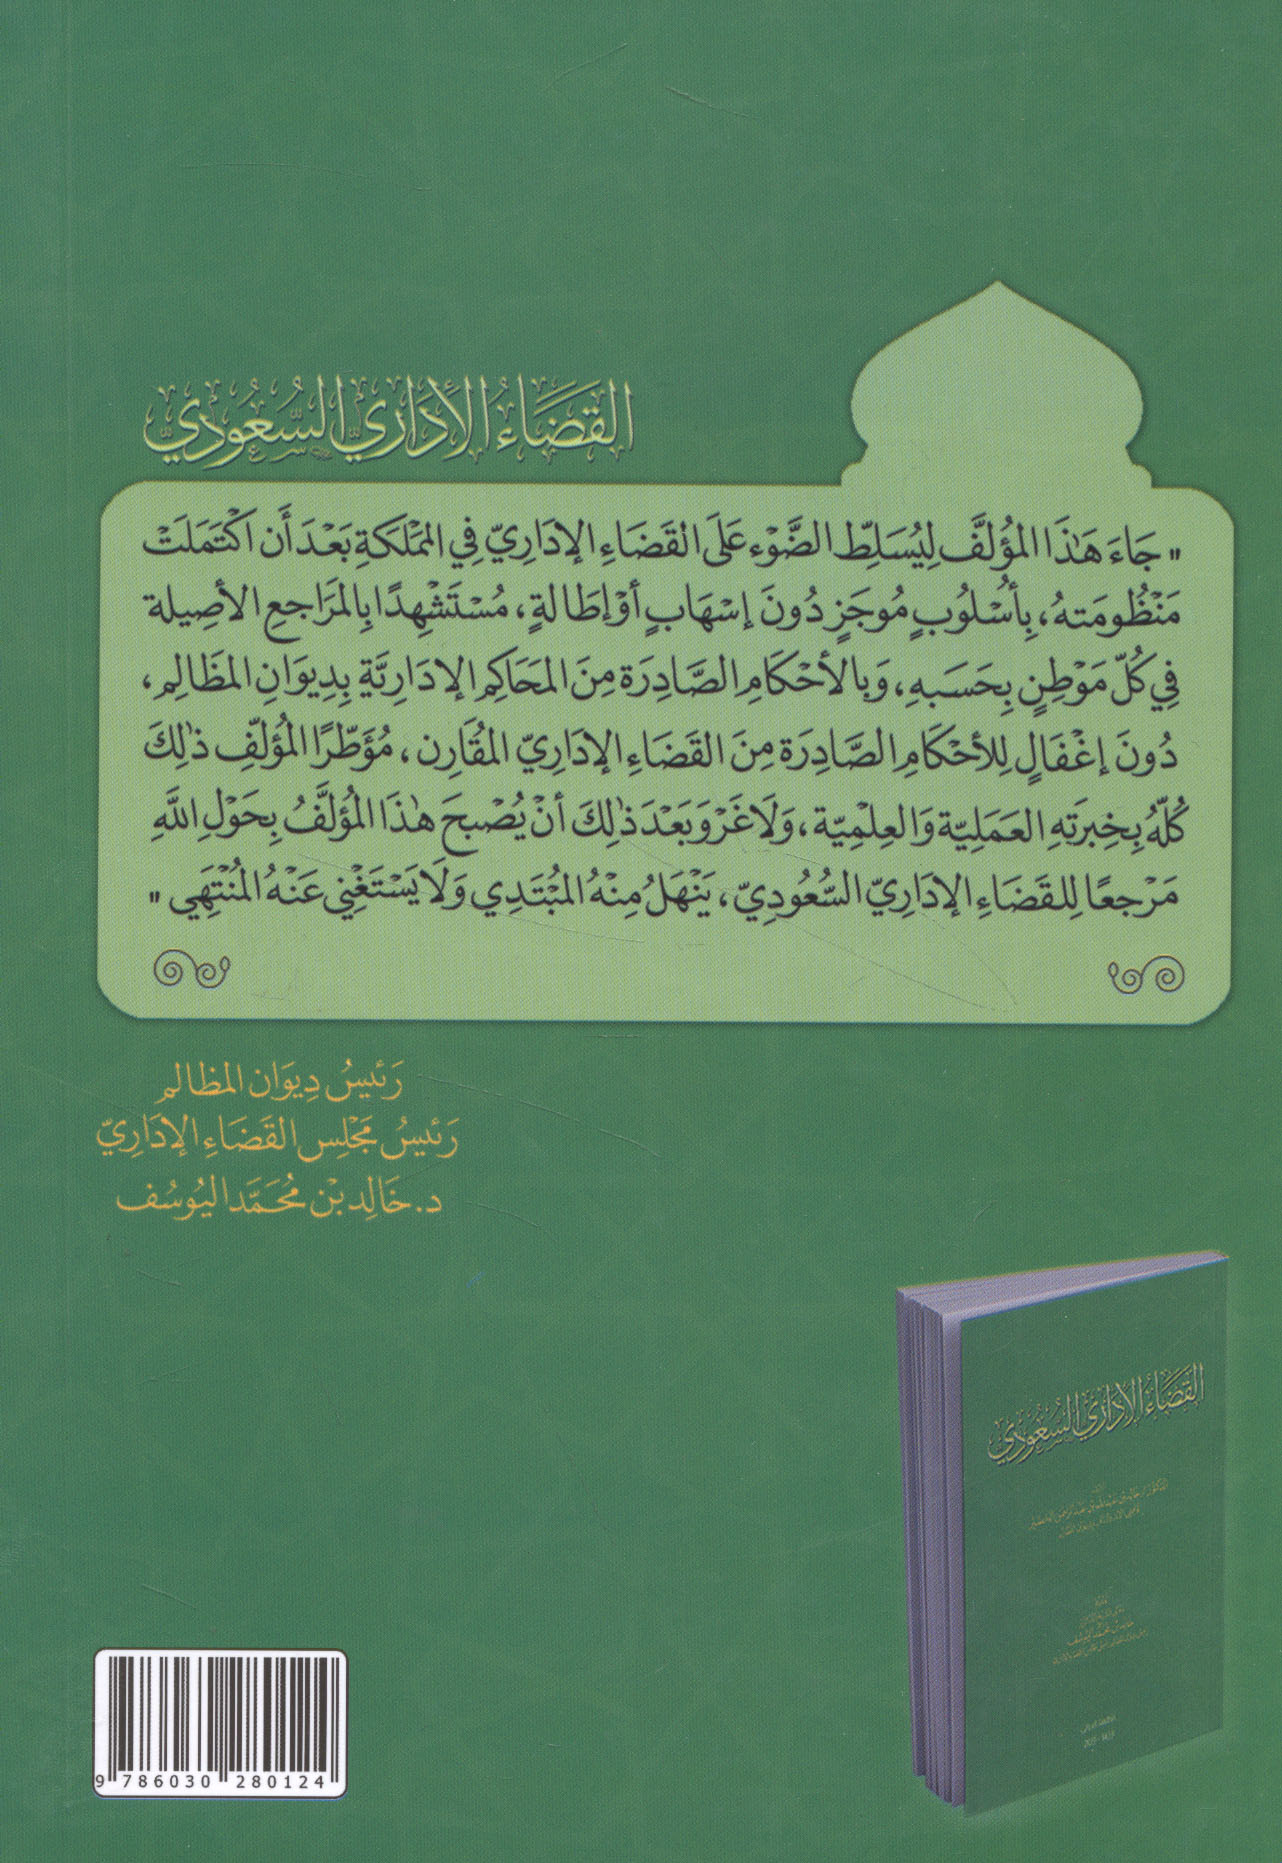 القَضَاءُ الأدَارِيّ السُّعُودِيّ
" جَاءَ هَٰذَا المُؤلَّف لِيُسَلِّطَ الضَّوْء عَلَى القَضَاءِ الإدَارِيّ فِي المَمْلَكَةِ بَعْدَ أَن اكْتَمَلَتْ
مَنْظُومَتهُ، بِأسْلُوبٍ مُوجَزٍ دُونَ إسْهَابٍ أوْ إطَالةٍ، مُسْتَشْهِدًا بِالمَرَاجعِ الأصِيلة
فِي كُلّ مَوْطِنٍ بِحَسَبهِ، وَبالأحْكَامِ الصَّادِرَة مِنَ المَحَاكِم الإدَارِيَّة بِدِيوَانِ المَظَالِم،
دُونَ إغْفَالٍ لِلأحْكَامِ الصَّادِرَة مِنَ القَضَاءِ الإدَارِيّ المُقَارِن، مُؤَطّرًا المُؤلّفِ ذٰلِكَ
كُلّهُ بِخِبرَتهِ العَمَليّة وَالعِلمِيّة، وَلَا غَرْوَ بَعْدَ ذٰلِكَ أنْ يُصْبحَ هٰذَا المُؤلَّفُ بِحَوْلِ اللَّهِ
مَرْجعًا لِلقَضَاءِ الإدَارِيّ السُّعُودِيّ، يَنْهَلُ مِنْهُ المُبْتَدِي وَلَا يَسْتَغْنِي عَنْهُ المُنْتَهِي "
رَئيسُ دِيوَان المَظالم
رَئيسُ مَجْلِس القَضَاءِ الإدَارِيّ
د. خَالِد بْن مُحَمَّد اليُوسُف
القَضَاءُ الإدَارِيّ السُّعُودِيّ
9 786030 280124